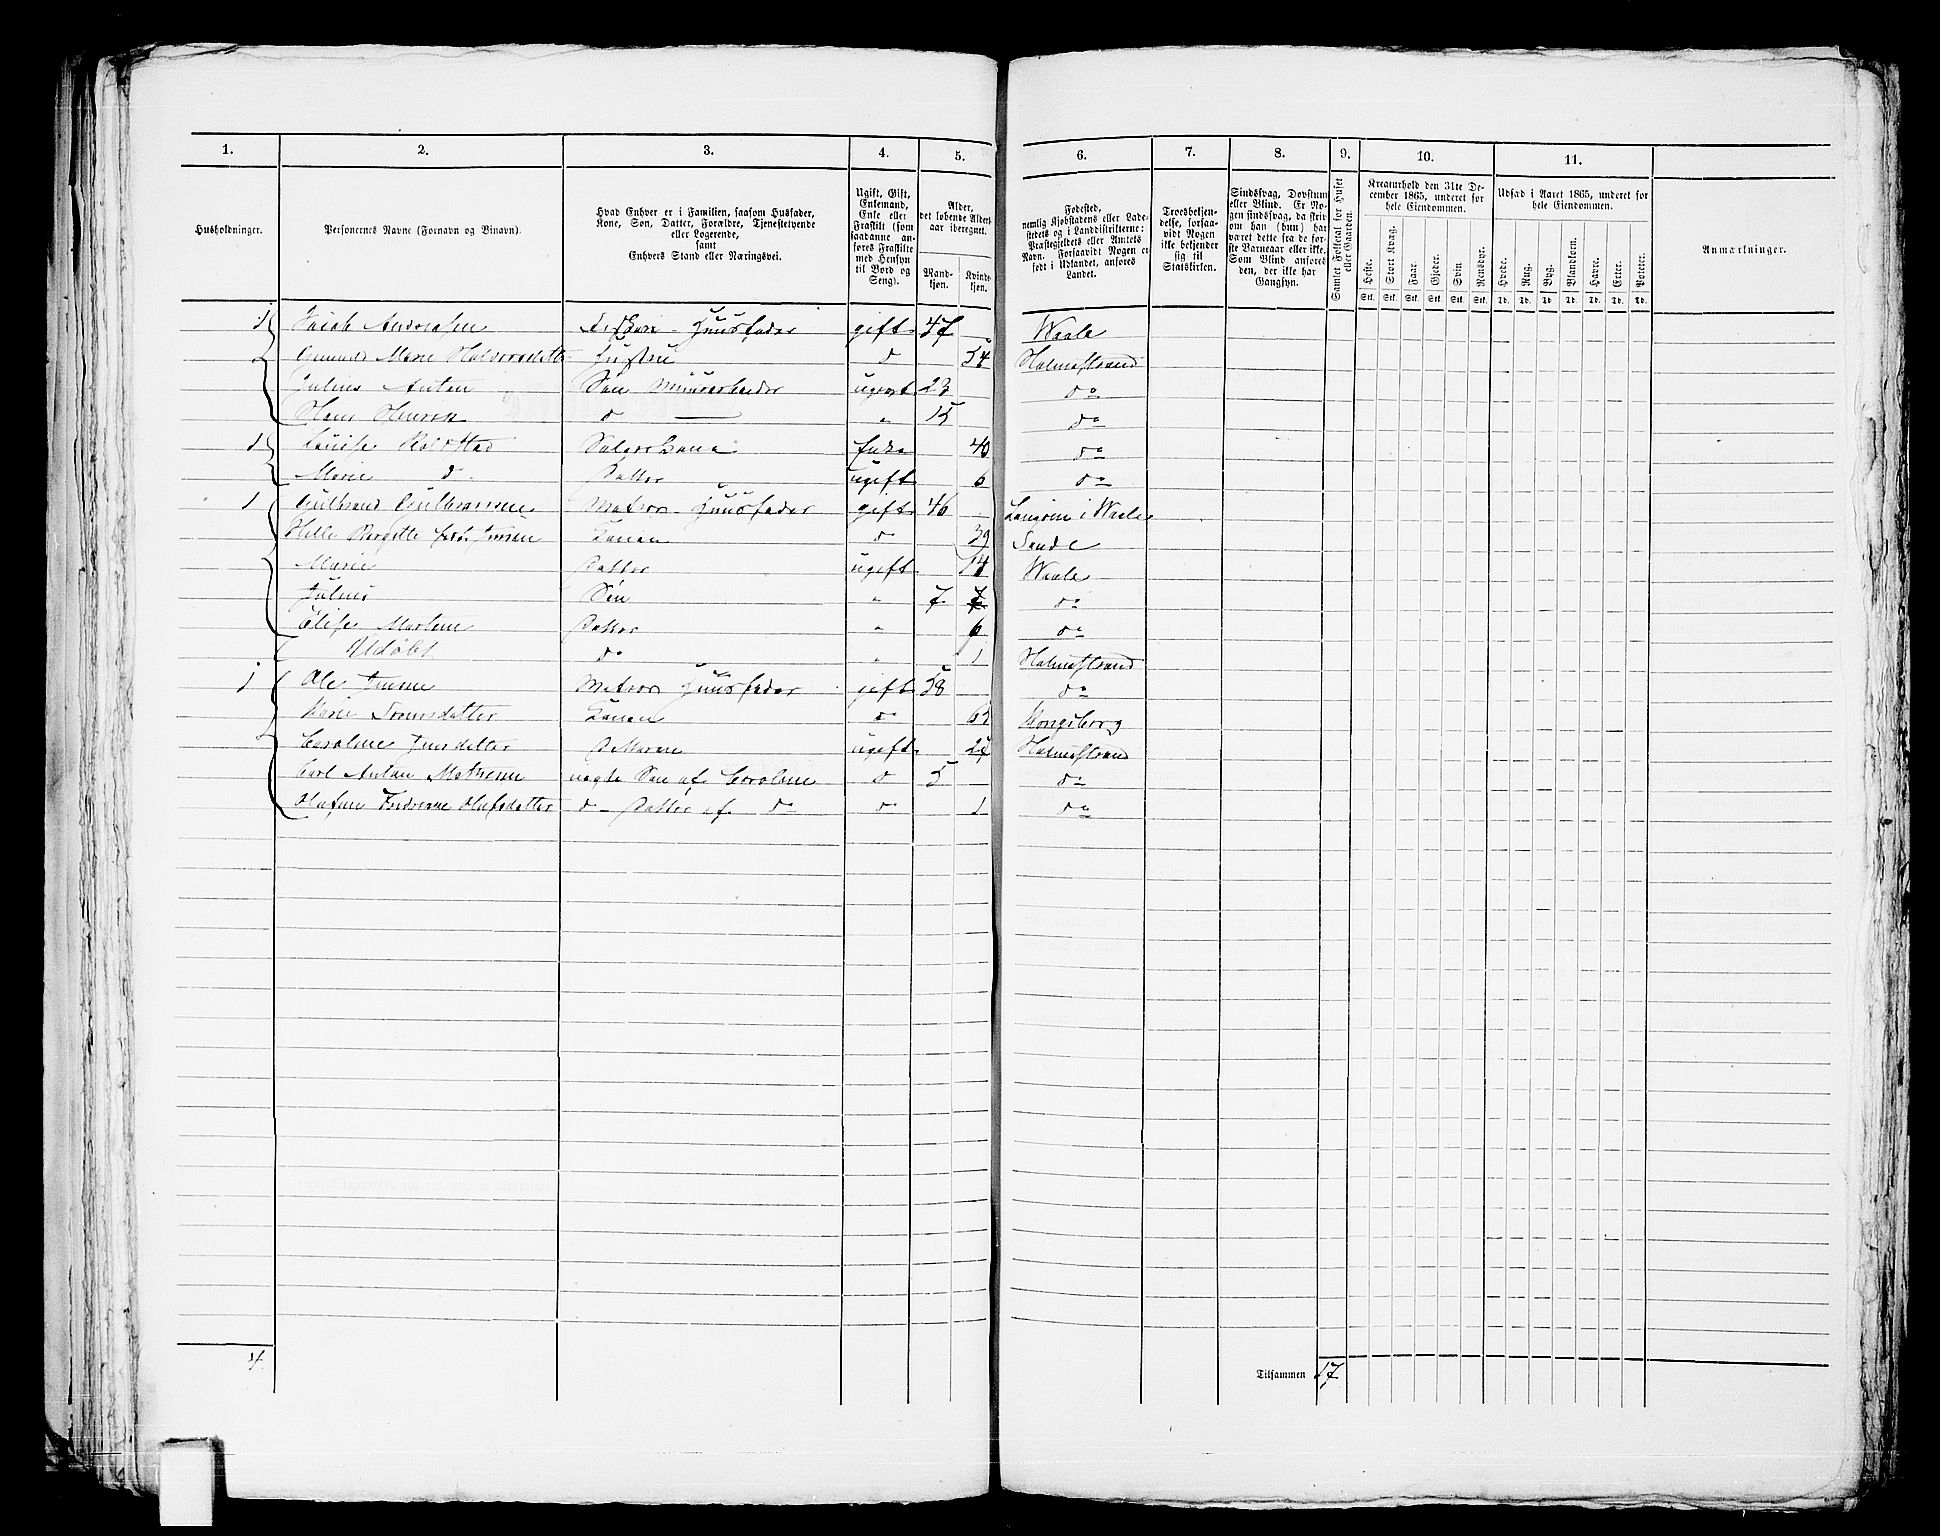 1. 2. 3. 4. 5. 6. 7. 8. 9. 10. 11.
Husholdninger.
Personernes Navne (Fornavn og Binavn).
Hvad Enhver er i Familien, saasom Husfader,
Kone, Søn, Datter, Forældre, Tjenestetyende
eller Logerende,
samt
Enhvers Stand eller Næringsvei.
Ugift, Gift,
Enkemand,
Enke eller
Fraskilt (som
saadanne an-
føres Fraskilte
med Hensyn
til Bord og
Seng).
Alder,
det løbende Alders-
aar iberegnet.
Mand-
kjøn.
Kvinde-
kjøn.
Fødested,
nemlig Kjøbstadens eller Lade-
stedets og i Landdistrikterne:
Præstegjeldets eller Amtets
Navn. Forsaavidt Nogen er
født i Udlandet, anføres
Landet.
Troesbekjen-
delse, forsaa-
vidt Nogen
ikke bekjender
sig til
Statskirken.
Sindssvag, Døvstum
eller Blind. Er No-
gen sindssvag, da skriv
om han (hun) har
været dette fra de før-
ste Barneaar eller ikke.
Som Blind anføres
den, der ikke har
Gangsyn.
Samlet Folketal for Huset
eller Gaarden.
Kreaturhold den 31te De-
cember 1865, underet for
hele Eiendommen.
Heste. Stort Kvæg. Faar. Gjeder. Svin. Rensdyr.
Stk. Stk. Stk. Stk. Stk. Stk.
Udsæd i Aaret 1865, underet for
hele Eiendommen.
Hvede. Rug. Byg. Blandkorn. Havre. Erter. Poteter.
Td. Td. Td. Td. Td. Td. Td.
Anmærkninger.
1 Andreasen Huusfader gift 47 Waale
Marie Hustru d 54 Holmestrand
Julius Anton Søn ugift 23 do
Hans d " 15 do
1 Enke 40 do
Marie d Datter ugift 6 do
1 Gulbrand Matros Huusfader gift 46 i Waale
Helle Konen d 39 Sande
Marie Datter ugift Waale
Julius Søn " 7 do
Elise Datter " 6 do
Udøbt do " 1 Holmestrand
1 Ole Matros Huusfader gift 58 do
Konen do Kongsberg
Caroline ugift Holmestrand
Carl Anton uægte Søn af Caroline d 5 do
Olufsdatter d - Datter af do do 1 do
4
Tilsammen 17